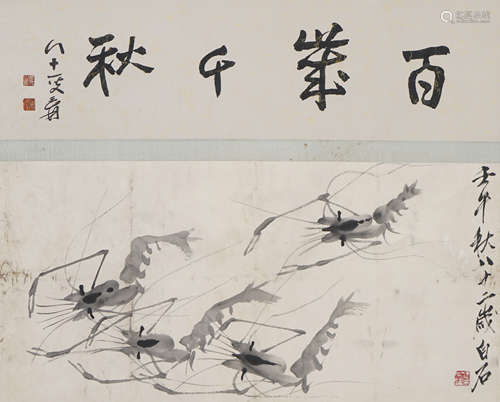 百歲千秋
八十一叟爰
壬午秋八十二歲白石